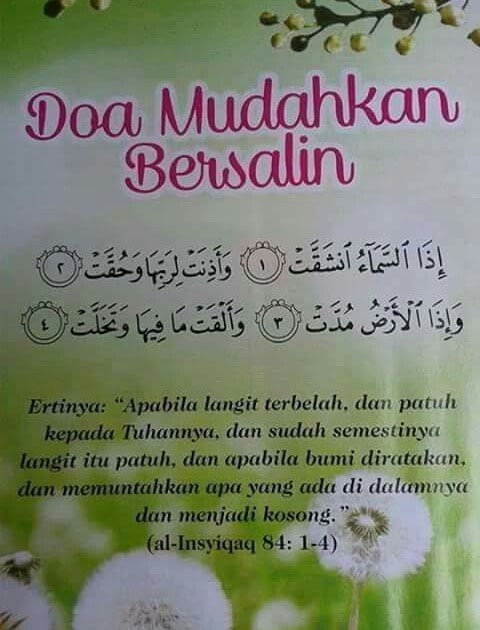 Doa Mudahkan
Bersalin
إِذَا ٱلسَّمَآءُ ٱنشَقَّتْ ١ وَأَذِنَتْ لِرَبِّهَا وَحُقَّتْ ٢
وَإِذَا ٱلْأَرْضُ مُدَّتْ ٣ وَأَلْقَتْ مَا فِيهَا وَتَخَلَّتْ ٤
Ertinya: “Apabila langit terbelah, dan patuh
kepada Tuhannya, dan sudah semestinya
langit itu patuh, dan apabila bumi diratakan,
dan memuntahkan apa yang ada di dalamnya
dan menjadi kosong.”
(al-Insyiqaq 84: 1-4)